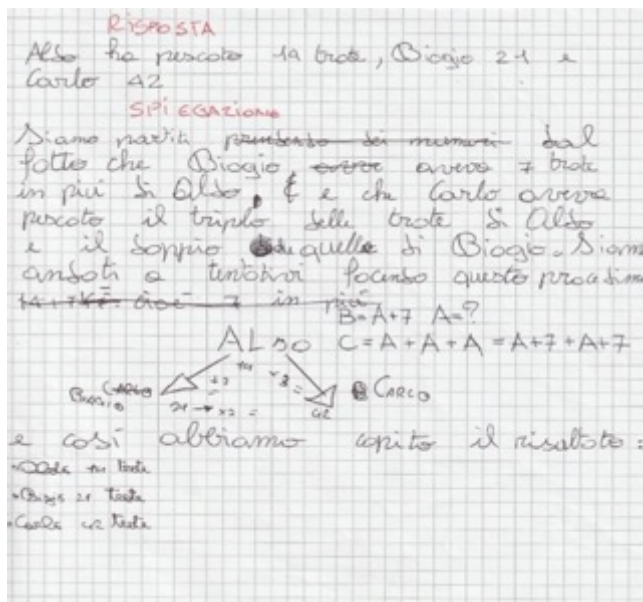 RISPOSTA
Aldo ha pescato 14 trote, Biagio 21 e
Carlo 42
SPIEGAZIONE
Siamo partiti prendendo dei numeri dal
fatto che Biagio aveva 7 trote
in più di Aldo, e che Carlo aveva
pescato il triplo delle trote di Aldo
e il doppio di quelle di Biagio. Siamo
andati a tentativi facendo questo procedim
in più
B=A+7 A=?
ALDO
C=A+A+A=A+7+A+7
14
+7 ×3
=
BIAGIO CARLO CARLO
21 → ×2 = 42
e così abbiamo capito il risultato:
•Aldo 14 trote
•Biagio 21 trote
•Carlo 42 trote